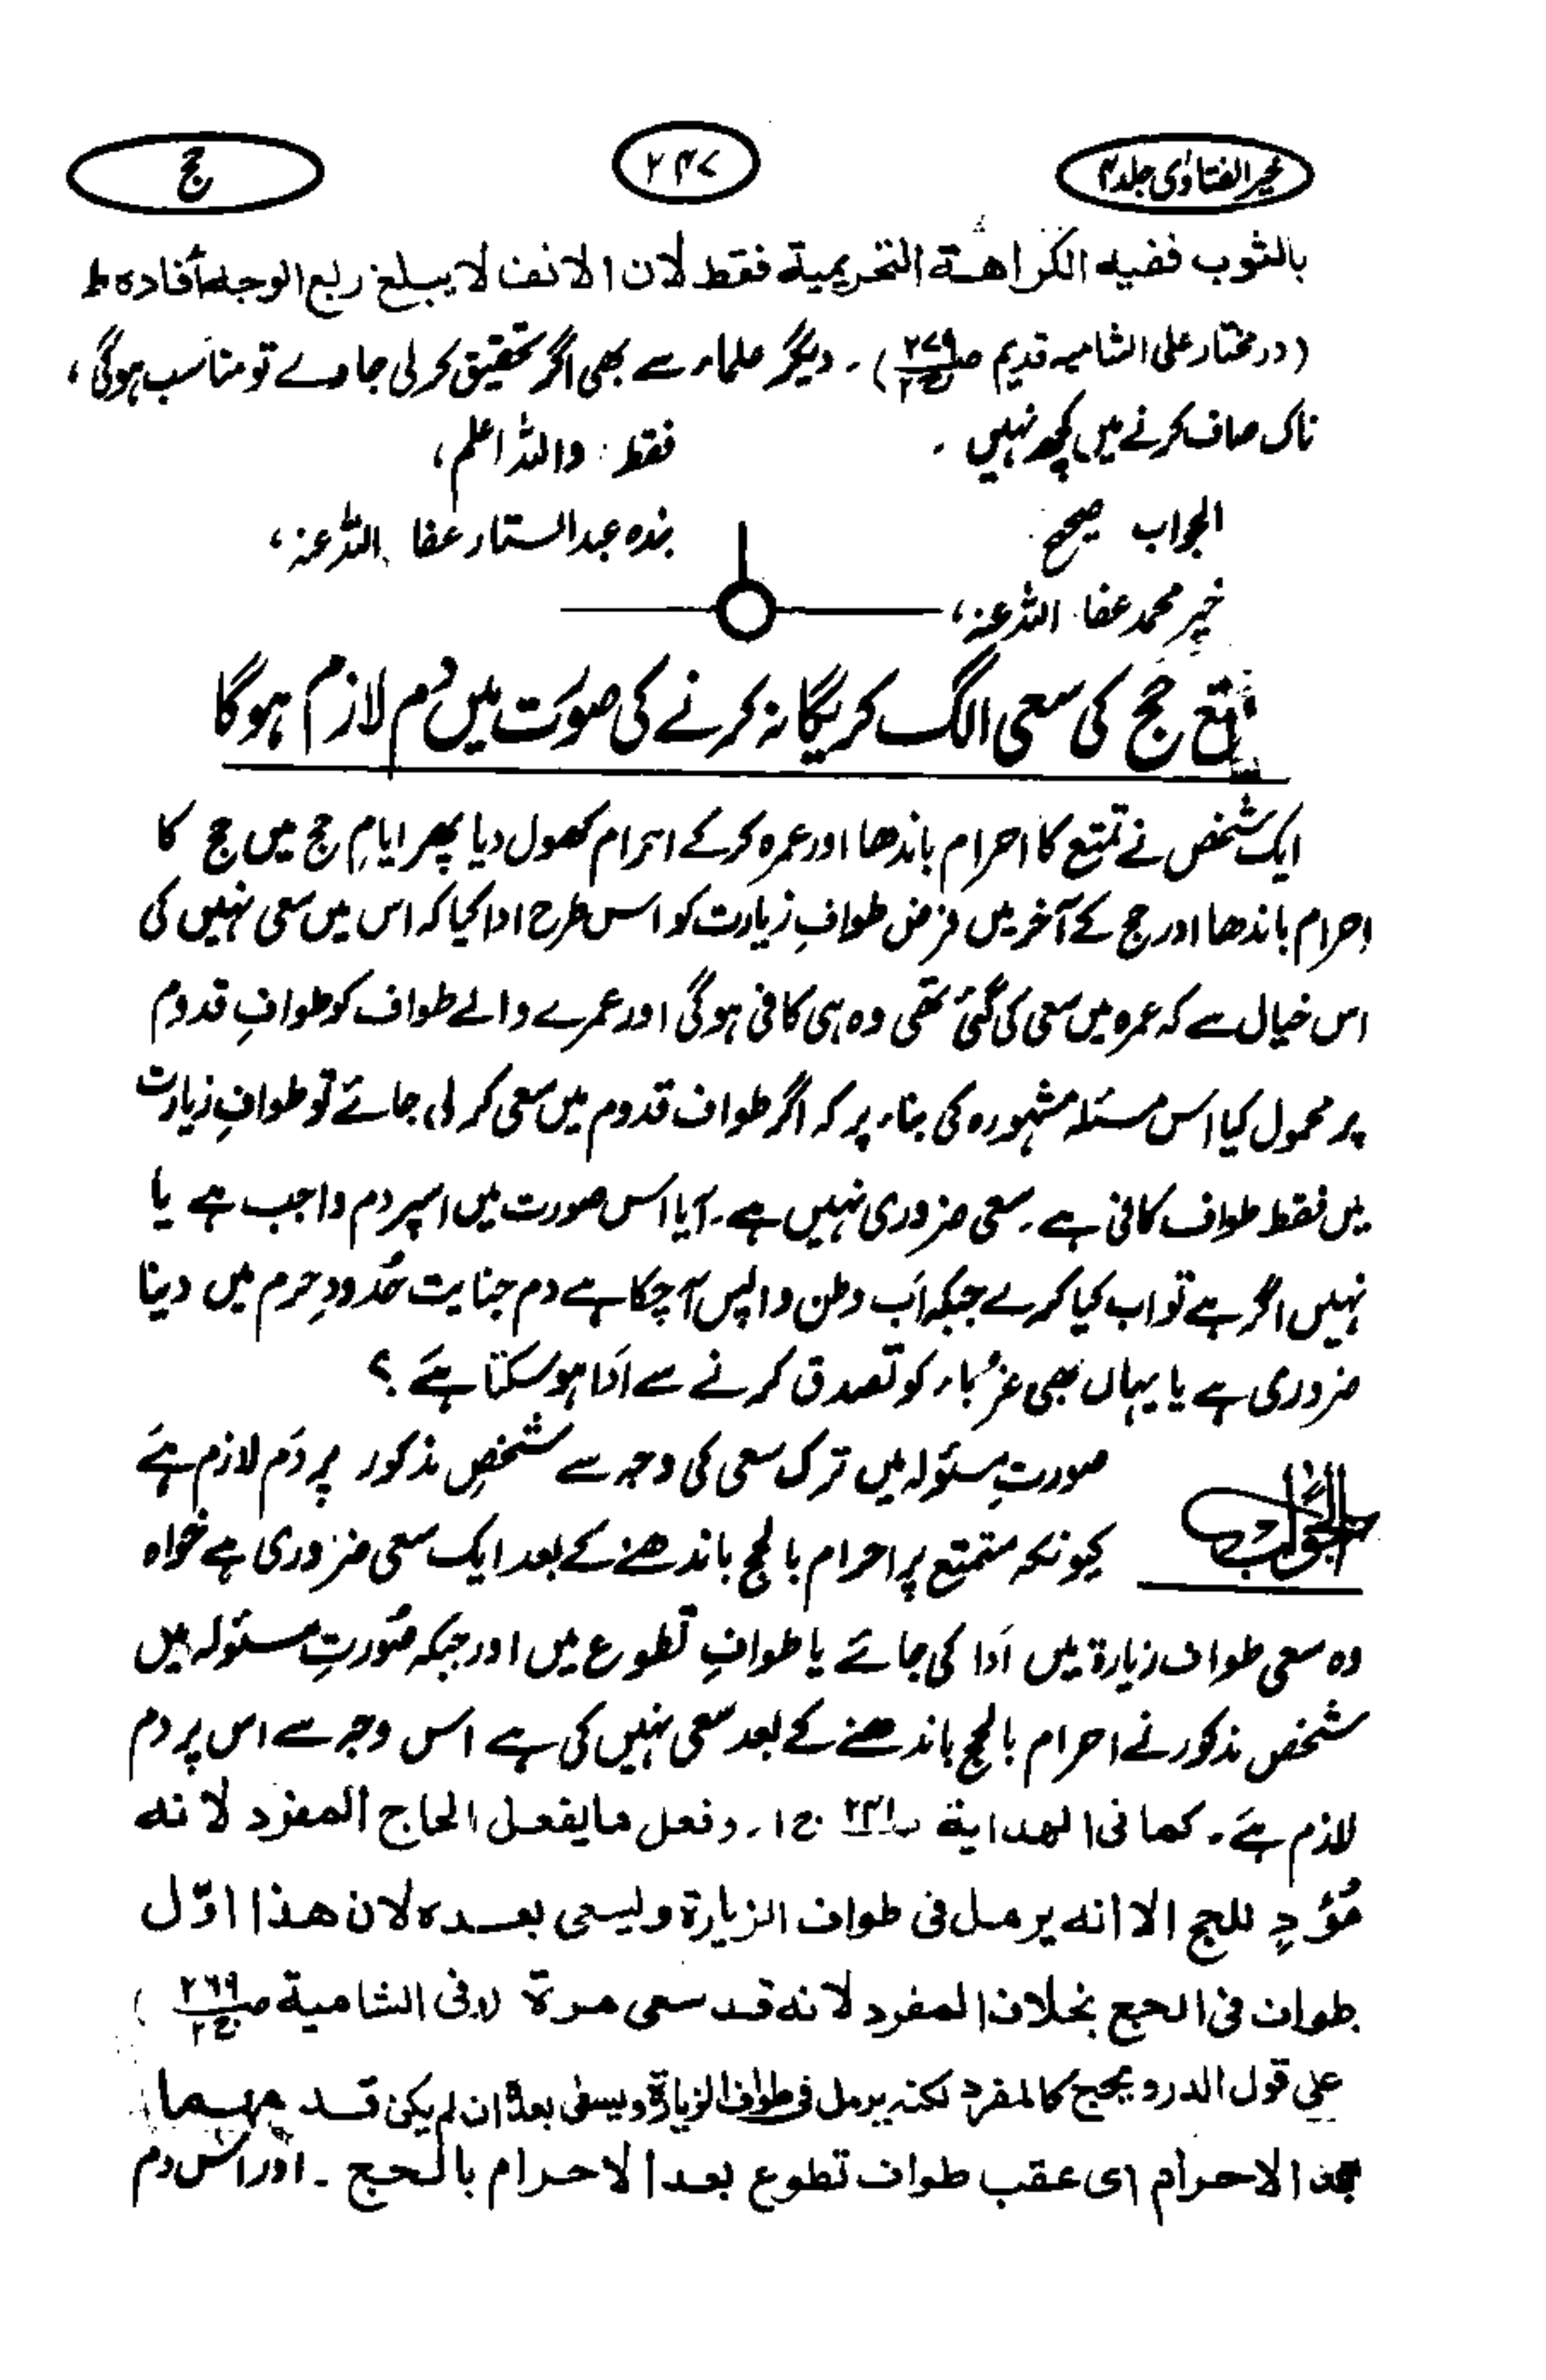 خیر الفتاوی جلد ۴
۲۳۷
حج
بالثوب ففیه الکراهة التحریمیة فقط لان الانف لا یبلغ ربع الوجه أفاده ط
(در مختار علی الشامیہ قدیم ص۲۷۹ ج۲)۔ دیگر علماء سے بھی اگر تحقیق کر لی جاوے تو مناسب ہوگی،
ناک صاف کرنے میں کچھ نہیں۔ فقط واللہ اعلم،
الجواب صحیح بندہ عبدالستار عفا اللہ عنہ،
خیر محمد عفا اللہ عنہ،
متمتع حج کی سعی الگ کریگا نہ کرنے کی صورت میں دم لازم ہوگا
ایک شخص نے تمتع کا احرام باندھا اور عمرہ کر کے احرام کھول دیا پھر ایام حج میں حج کا
احرام باندھا اور حج کے آخر میں فرض طوافِ زیارت کو اس طرح ادا کیا کہ اس میں سعی نہیں کی
اس خیال سے کہ عمرہ میں سعی کی گئی تھی وہ ہی کافی ہوگی اور عمرے والے طواف کو طوافِ قدوم
پر محمول کیا اس مسئلہ مشہورہ کی بناء پر کہ اگر طواف قدوم میں سعی کر لی جائے تو طوافِ زیارت
میں فقط طواف کافی ہے۔ سعی ضروری نہیں ہے۔ آیا اس صورت میں اسپر دم واجب ہے یا
نہیں اگر ہے تو اب کیا کرے جبکہ اَب وطن واپس آ چکا ہے دم جنایت حُدودِ حرم میں دینا
ضروری ہے یا یہاں بھی غرباء کو تصدق کرنے سے اَدا ہو سکتا ہے ؟
الجواب صورتِ مسئولہ میں ترک سعی کی وجہ سے شخصِ مذکور پر دَم لازم ہے
کیونکہ متمتع پر احرام بالحج باندھنے کے بعد ایک سعی ضروری ہے خواہ
وہ سعی طواف زیارۃ میں اَدا کی جائے یا طوافِ تطوع میں اور جبکہ صُورتِ مسئولہ میں
شخص مذکور نے احرام بالحج باندھنے کے بعد سعی نہیں کی ہے اس وجہ سے اس پر دم
لازم ہے۔ کما فی الهدایة ص۲۴۱ ج۱۔ وفعل ما یفعل الحاج المفرد لانه
مُؤدٍ للحج الا انه یرمل فی طواف الزیارة ویسعی بعده لان هذا اوّل
طواف فی الحج بخلاف المفرد لانه قد سعی مرة (وفی الشامیة ص۲۶۹ ج۲)
علی قول الدر ویحج کالمفرد لکنه یرمل فی طواف الزیارة ویسعی بعده ان لم یکن قد
بعد الاحرام ای عقب طواف تطوع بعد الاحرام بالحج ۔ اور اس دم